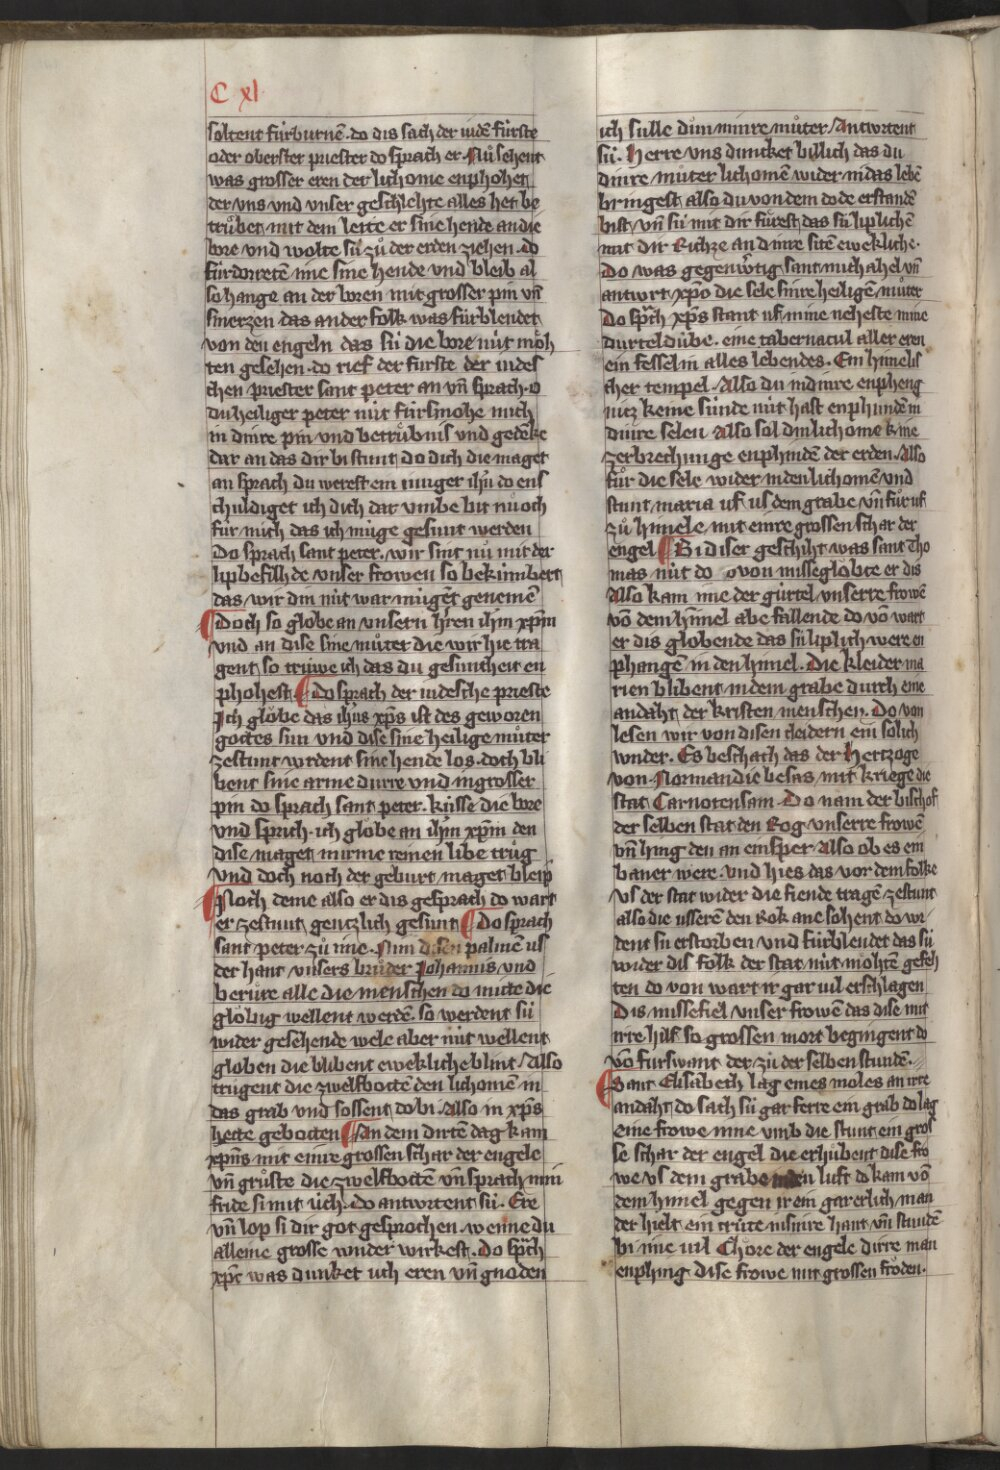 C xl
soltent fúrburnē · do dis sach der iudē fúrste
oder oberster priester do sprach er · Nu sehent
was grosser eren der lichome enphohet
der vns vnd vnser geschlehte alles het be
trůbet mit dem leite er sine hende an die
bore vnd wolte sú zů der erden ziehen · do
fúrdorretēn ime sine hende vnd bleib al
so hange an der boren mit grosser pin vn̄
smerzen das ander folk was fúrblendet
von den engeln das sú die bore nút moh
ten gesehen · do rief der fúrste der iudes
chen priester sant peter an vn̄ sprach · o
du heiliger peter nút fúrsmohe mich
in dinre pin vnd betrůbnis vnd gedēke
dar an das dir bi stunt do dich die maget
an sprach du werest ein iunger ih̄u do ens
chuldiget ich dich dar vmbe bit nu och
fúr mich das ich múge gesunt werden
Do sprach sant peter · wir sint nu mit der
lipbefilhde vnser frowen so bekúmbert
das wir din nút war múgēt genemē
Doch so globe an vnsern h̄ren ih̄m xp̄m
vnd an dise sine můter die wir hie tra
gent so trúwe ich das du gesuntheit en
phohest Do sprach der iudesche prieste
Ich globe das ih̄us xp̄s ist des geworen
gottes sun vnd dise sine heilige můter
zestunt wrdent sine hende los · doch bli
bent sine arme durre vnd in grosser
pin do sprach sant peter · kússe die bore
vnd sprich · ich globe an ih̄m xp̄m den
dise maget in irme reinen libe trůg
vnd doch noch der geburt maget bleip
Noch deme also er dis gesprach do wart
er zestunt gentzlich gesunt Do sprach
sant peter zů ime · Nim disen palmē us
der hant vnsers brůder Johannis vnd
berúre alle die menschen do mitte die
globig wellent werdē · so werdent sú
wider gesehende wele aber nút wellent
globen die blibent ewekliche blint · Also
trůgent die zwelfbottē den lichomē in
das grab vnd sossent do bi · Also in xp̄s
hette gebotten An dem dirtē dag kam
xp̄us mit einre grossen schar der engele
vn̄ grůste die zwelfbottē vn̄ sprach min
fride si mit úch · do antwrtent sú · Ere
vn̄ lop si dir got gesprochen · wenne du
alleine grosse wnder wirkest · Do sp̄ch
xp̄c was dunket uch eren vn̄ gnoden
ich sulle důn minre můter Antwrtent
sú · Herre vns duncket billich das du
dinre můter lichomē wider in das lebē
bringest also du von dem dode erstandē
bist vn̄ sú mit dir fúrest das sú liplichē
mit dir Richze an dinre sitē ewekliche ·
Do was gegenẘtig sant michahel vn̄
antwrt xp̄o die sele sinre heiligē můter
Do sp̄ch xp̄s stant uf mine neheste mine
durteldube · eine tabernacul aller eren
ein fesselin alles lebendes · Ein himels
cher tempel · Also du in dinre enpheng
nuz keine súnde nút hast enphundē in
dinre selen Also sol din lichome keine
zerbrechunge enphindē der erden · Also
fůr die sele wider in den lichomē vnd
stunt maria uf us dem grabe vn̄ fůr uf
zů himele mit einre grossen schar der
engel Bi diser geschiht was sant Tho
mas nút do von misseglobte er dis
Also kam ime der gúrtel vnserre frowē
vō dem himel abe fallende do vō wart
er dis globende das sú liplich were en
phangē in den himel · Die kleider ma
rien blibent in dem grabe durch eine
andaht der kristen menschen · Do von
lesen wir von disen cleidern ein solich
wnder · Es beschach das der Hertzoge
von Normandie besas mit kriege die
stat Carnotensam · Do nam der bischof
der selben stat den Rog vnserre frowē
vn̄ hing den an ein sper Also ob es ein
baner were · vnd hies das vor dem folke
vs der stat wider die fiende tragē zestunt
also die usserē den Rok ane sohent do wr
dent sú erstorben vnd fúrblendet das sú
wider dis folk der stat nút mohtē gefeh
ten do von wart ir gar uil erschlagen
Dis missefiel vnser frowē das dise mit
irre hilf so grossen mort begingent do
vō furswant der zů der selben stundē ·
Sant Elisabeth lag eines moles an irre
andaht do sach sú gar ferre ein grab do lag
eine frowe inne vmb die stunt ein gros
se schar der engel die erhůbent dise fro
we vs dem grabe in den luft do kam vō
dem himel gegen ir ein gar erlich man
der hielt ein crúte in sinre hant vn̄ stundē
bi ime uil Chore der engele dirre man
enphing dise frowe mit grossen froden ·